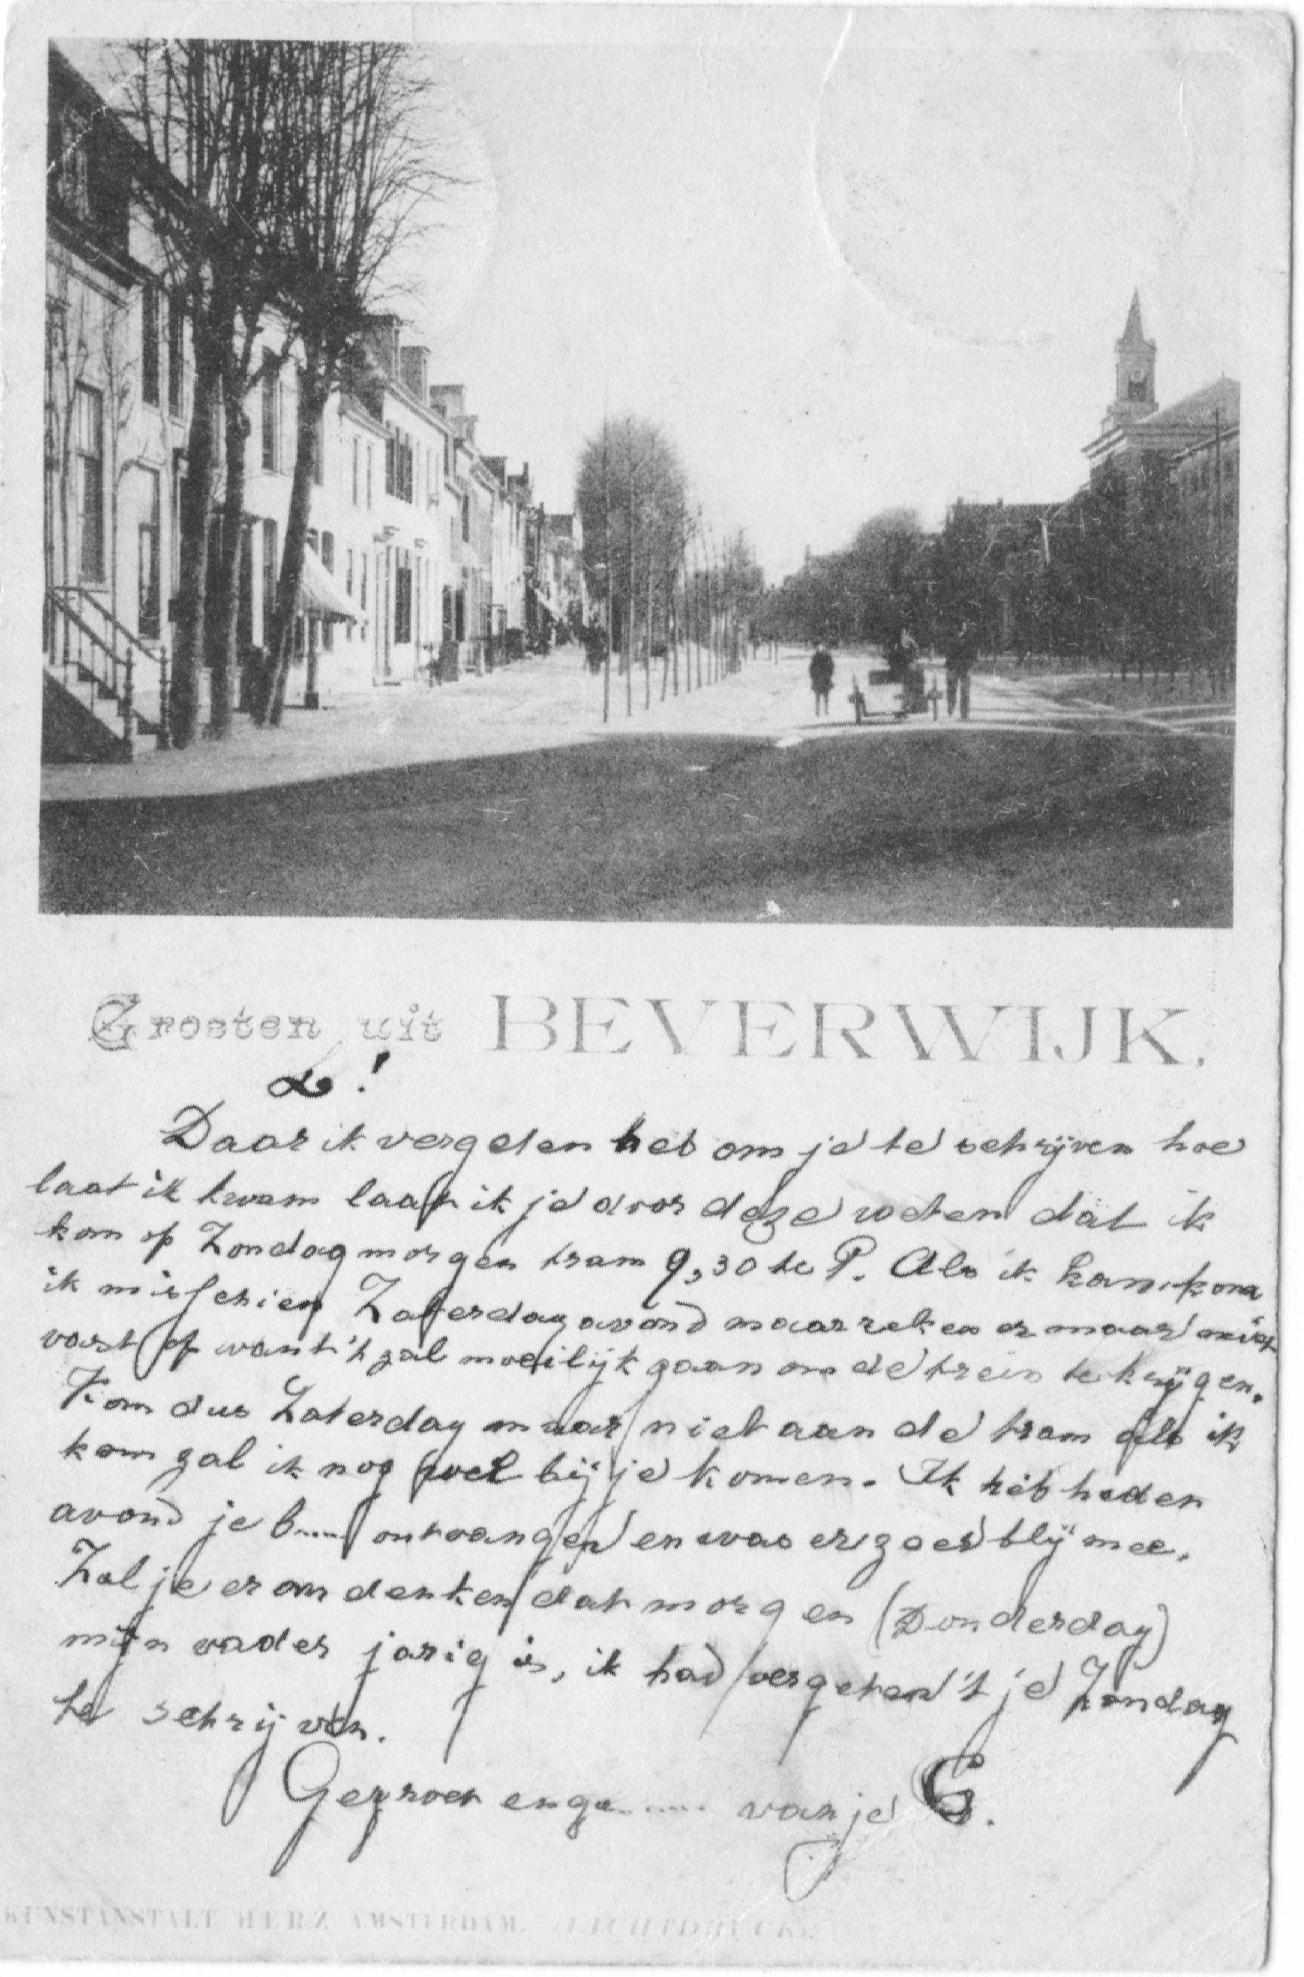 Groeten uit BEVERWIJK.
L!
Daar ik vergeten heb om je te schrijven hoe
laat ik kwam laat ik je door deze weten dat ik
kom op Zondagmorgen tram 9,30 te P. Als ik kan, kom
ik misschien Zaterdagavond maar reken er maar niet
vast op want 't zal moeilijk gaan om de trein te krijgen.
Kom dus Zaterdag maar niet aan de tram als ik
kom zal ik nog wel bij je komen. Ik heb heden
avond je b..... ontvangen en was er zoo blij mee.
Zal je er om denken dat morgen (Donderdag)
mijn vader jarig is, ik had vergeten 't je Zondag
te schrijven.
Gegroet en ge....... van je G.
KUNSTANSTALT HERZ AMSTERDAM. LICHTDRUCK.